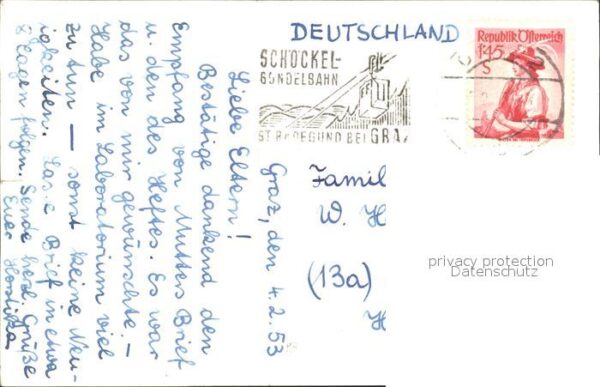 DEUTSCHLAND
Republik Österreich
1.45
S
SCHÖCKEL-
GONDELBAHN
ST. RADEGUND BEI GRAZ
Graz, den 4.2.53
Liebe Eltern!
Bestätige dankend den
Empfang von Mutters Brief
u. den des Heftes. Es war
das von mir gewünschte. –
Habe im Laboratorium viel
zu tun — sonst keine Neu-
igkeiten. Brief in etwa
8 Tagen folgen. Sende herzl. Grüße
Euer
Famil
W. H
(13a)
H
privacy protection
Datenschutz